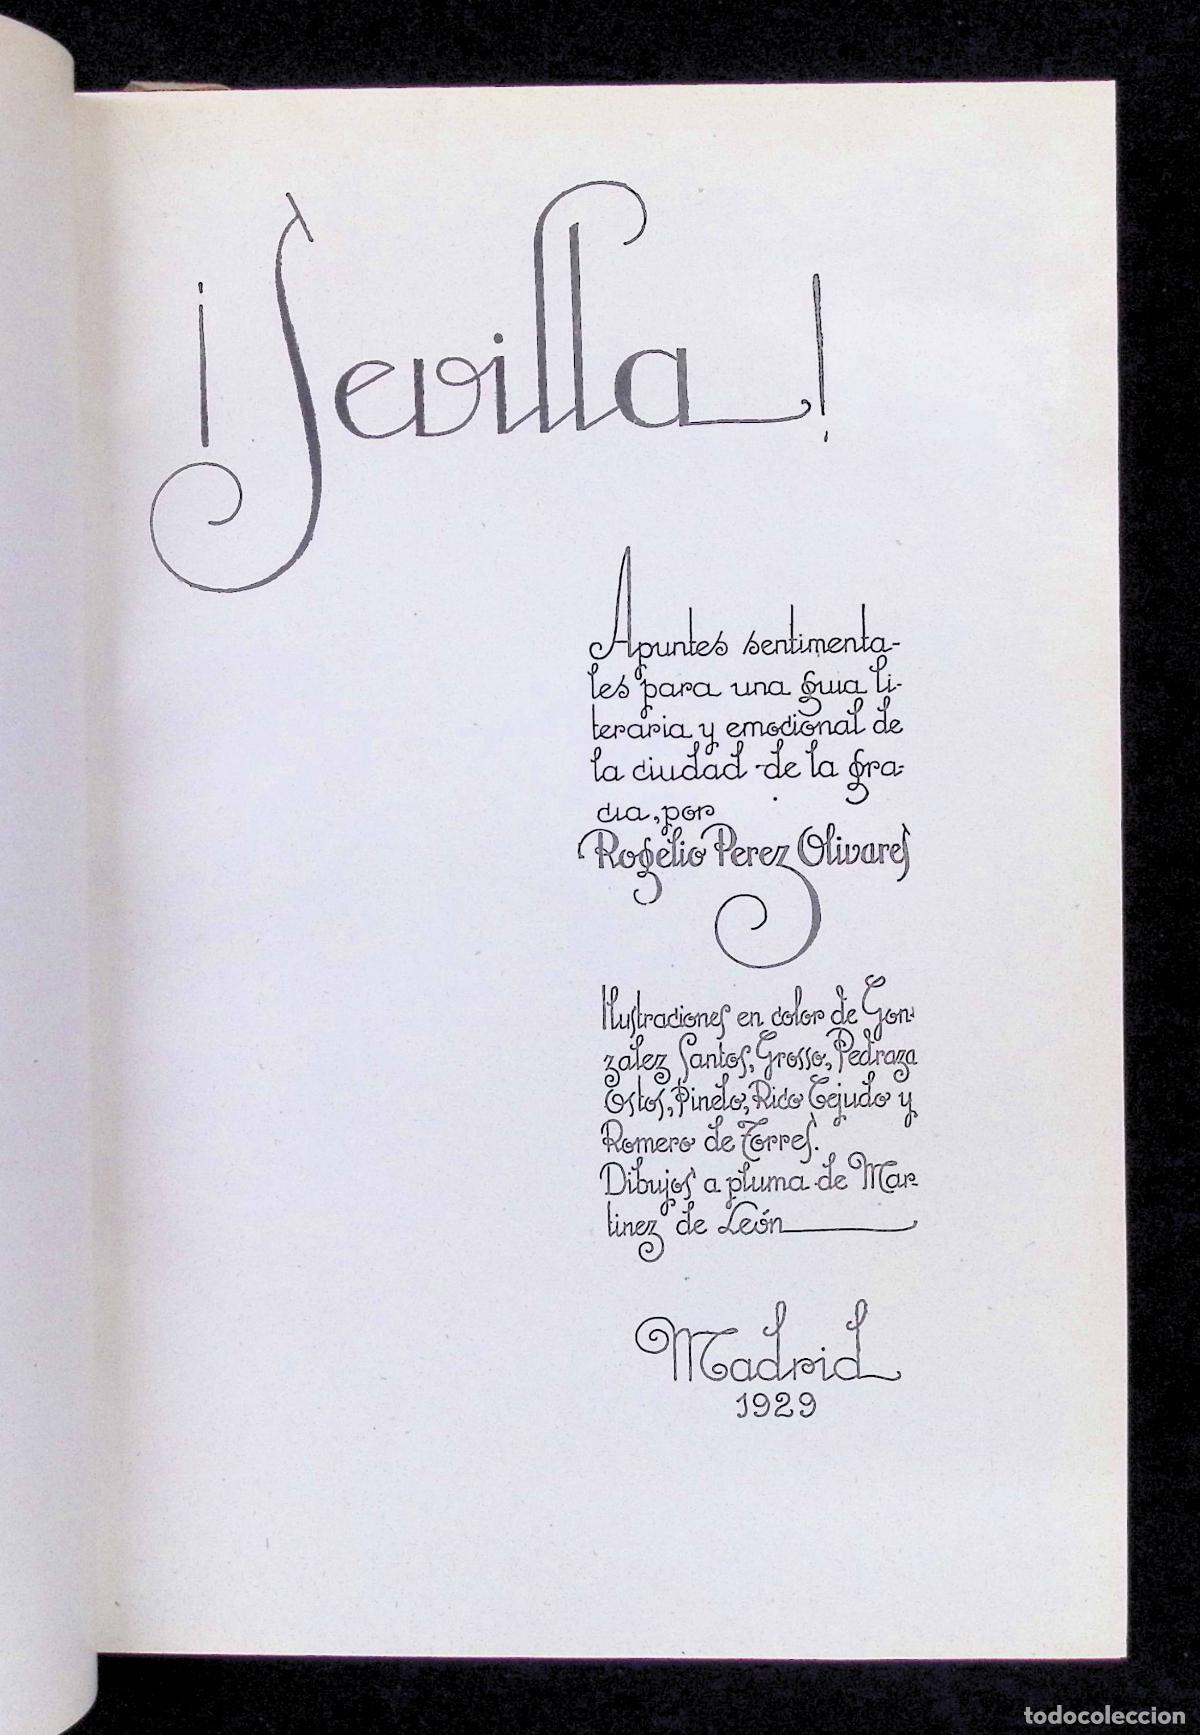 ¡Sevilla!
Apuntes sentimenta-
les para una guia li-
teraria y emocional de
la ciudad de la gra-
cia, por
Rogelio Perez Olivares
Ilustraciones en color de Gon-
zalez Santos, Grosso, Pedraza
Ostos, Pinelo, Rico Cejudo y
Romero de Torres.
Dibujos a pluma de Mar-
tinez de León
Madrid
1929
todocoleccion